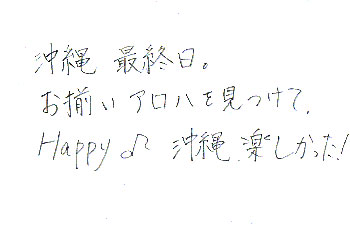 沖縄 最終日。
お揃いアロハを見つけて、
Happy♪ 沖縄 楽しかった!